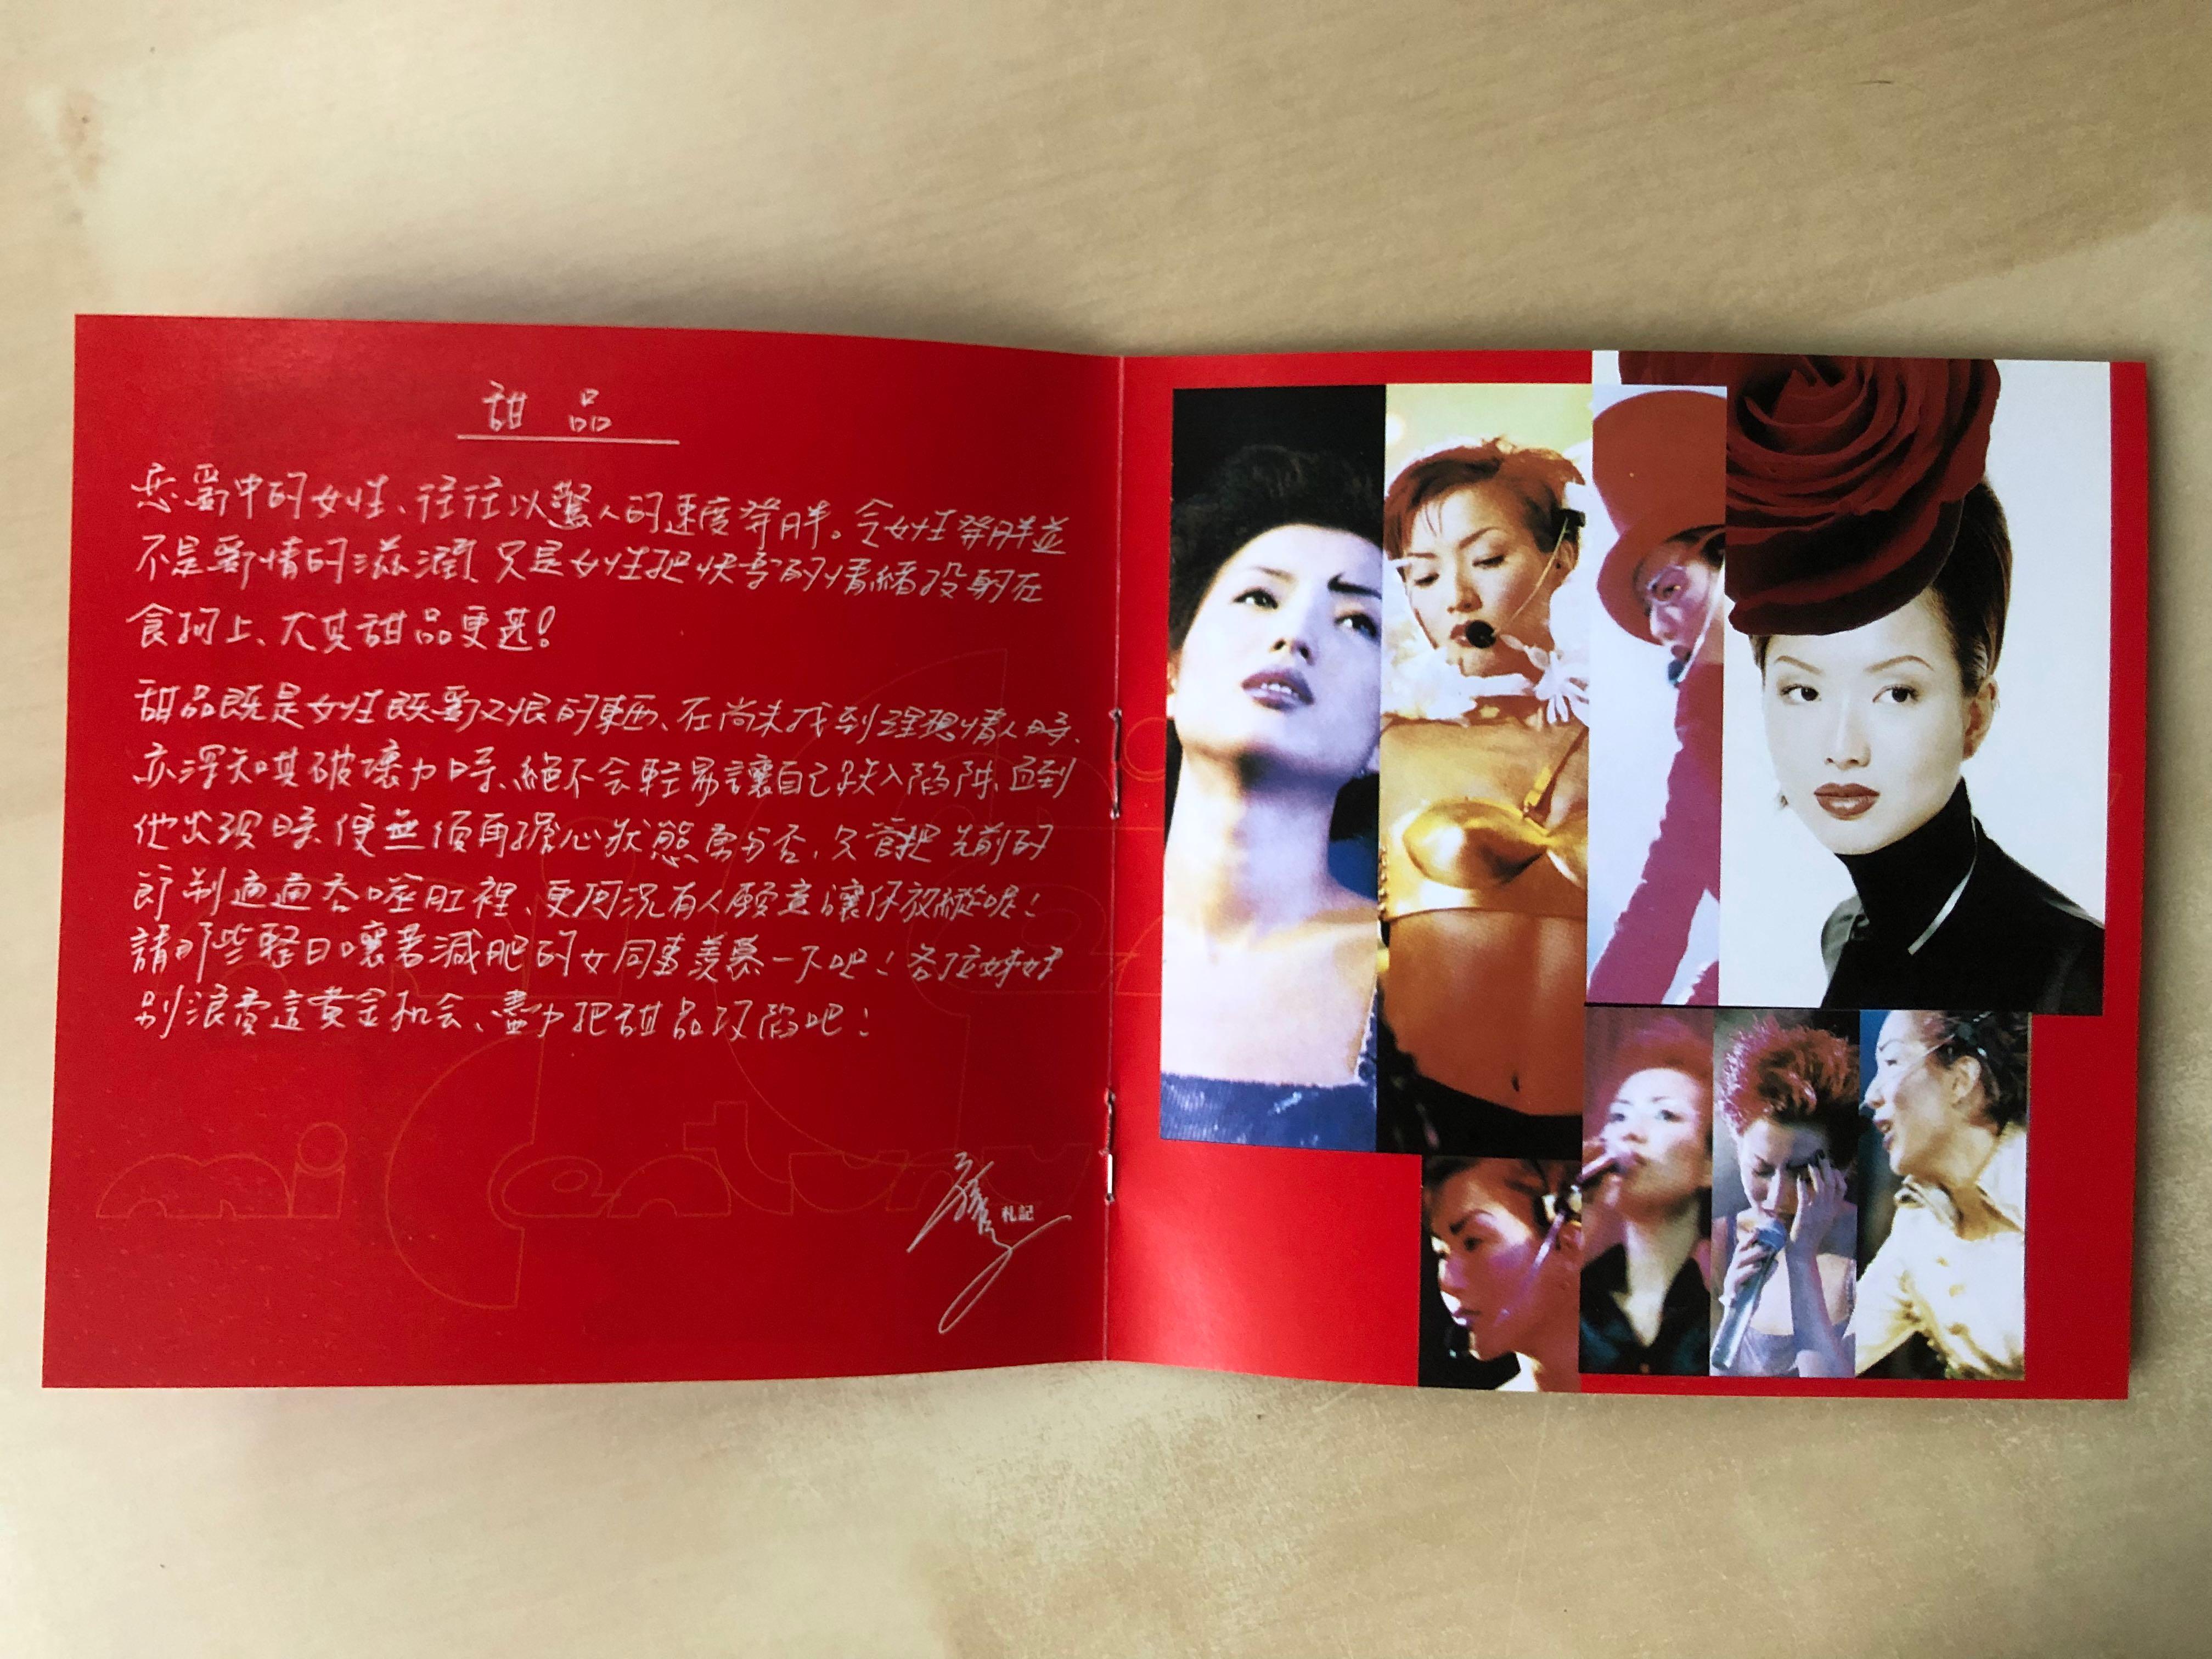 甜品
恋爱中的女性、往往以驚人的速度發胖。令女性發胖並
不是愛情的滋潤，只是女性把快樂的情緒投射在
食物上、尤其甜品更甚！
甜品既是女性既愛又恨的東西、在尚未找到理想情人時、
亦深知其破壞力時、絕不会輕易讓自己跌入陷阱、直到
他出現時、便無須再擔心狀態 否、只管把先前的
節制通通吞噬肚裡、更何況有人願意讓你放縱呢！
請那些輕日嚷著減肥的女同事羨慕一下吧！各位姊妹
別浪費這黃金机会、盡力把甜品攻陷吧！
mi Century
札記